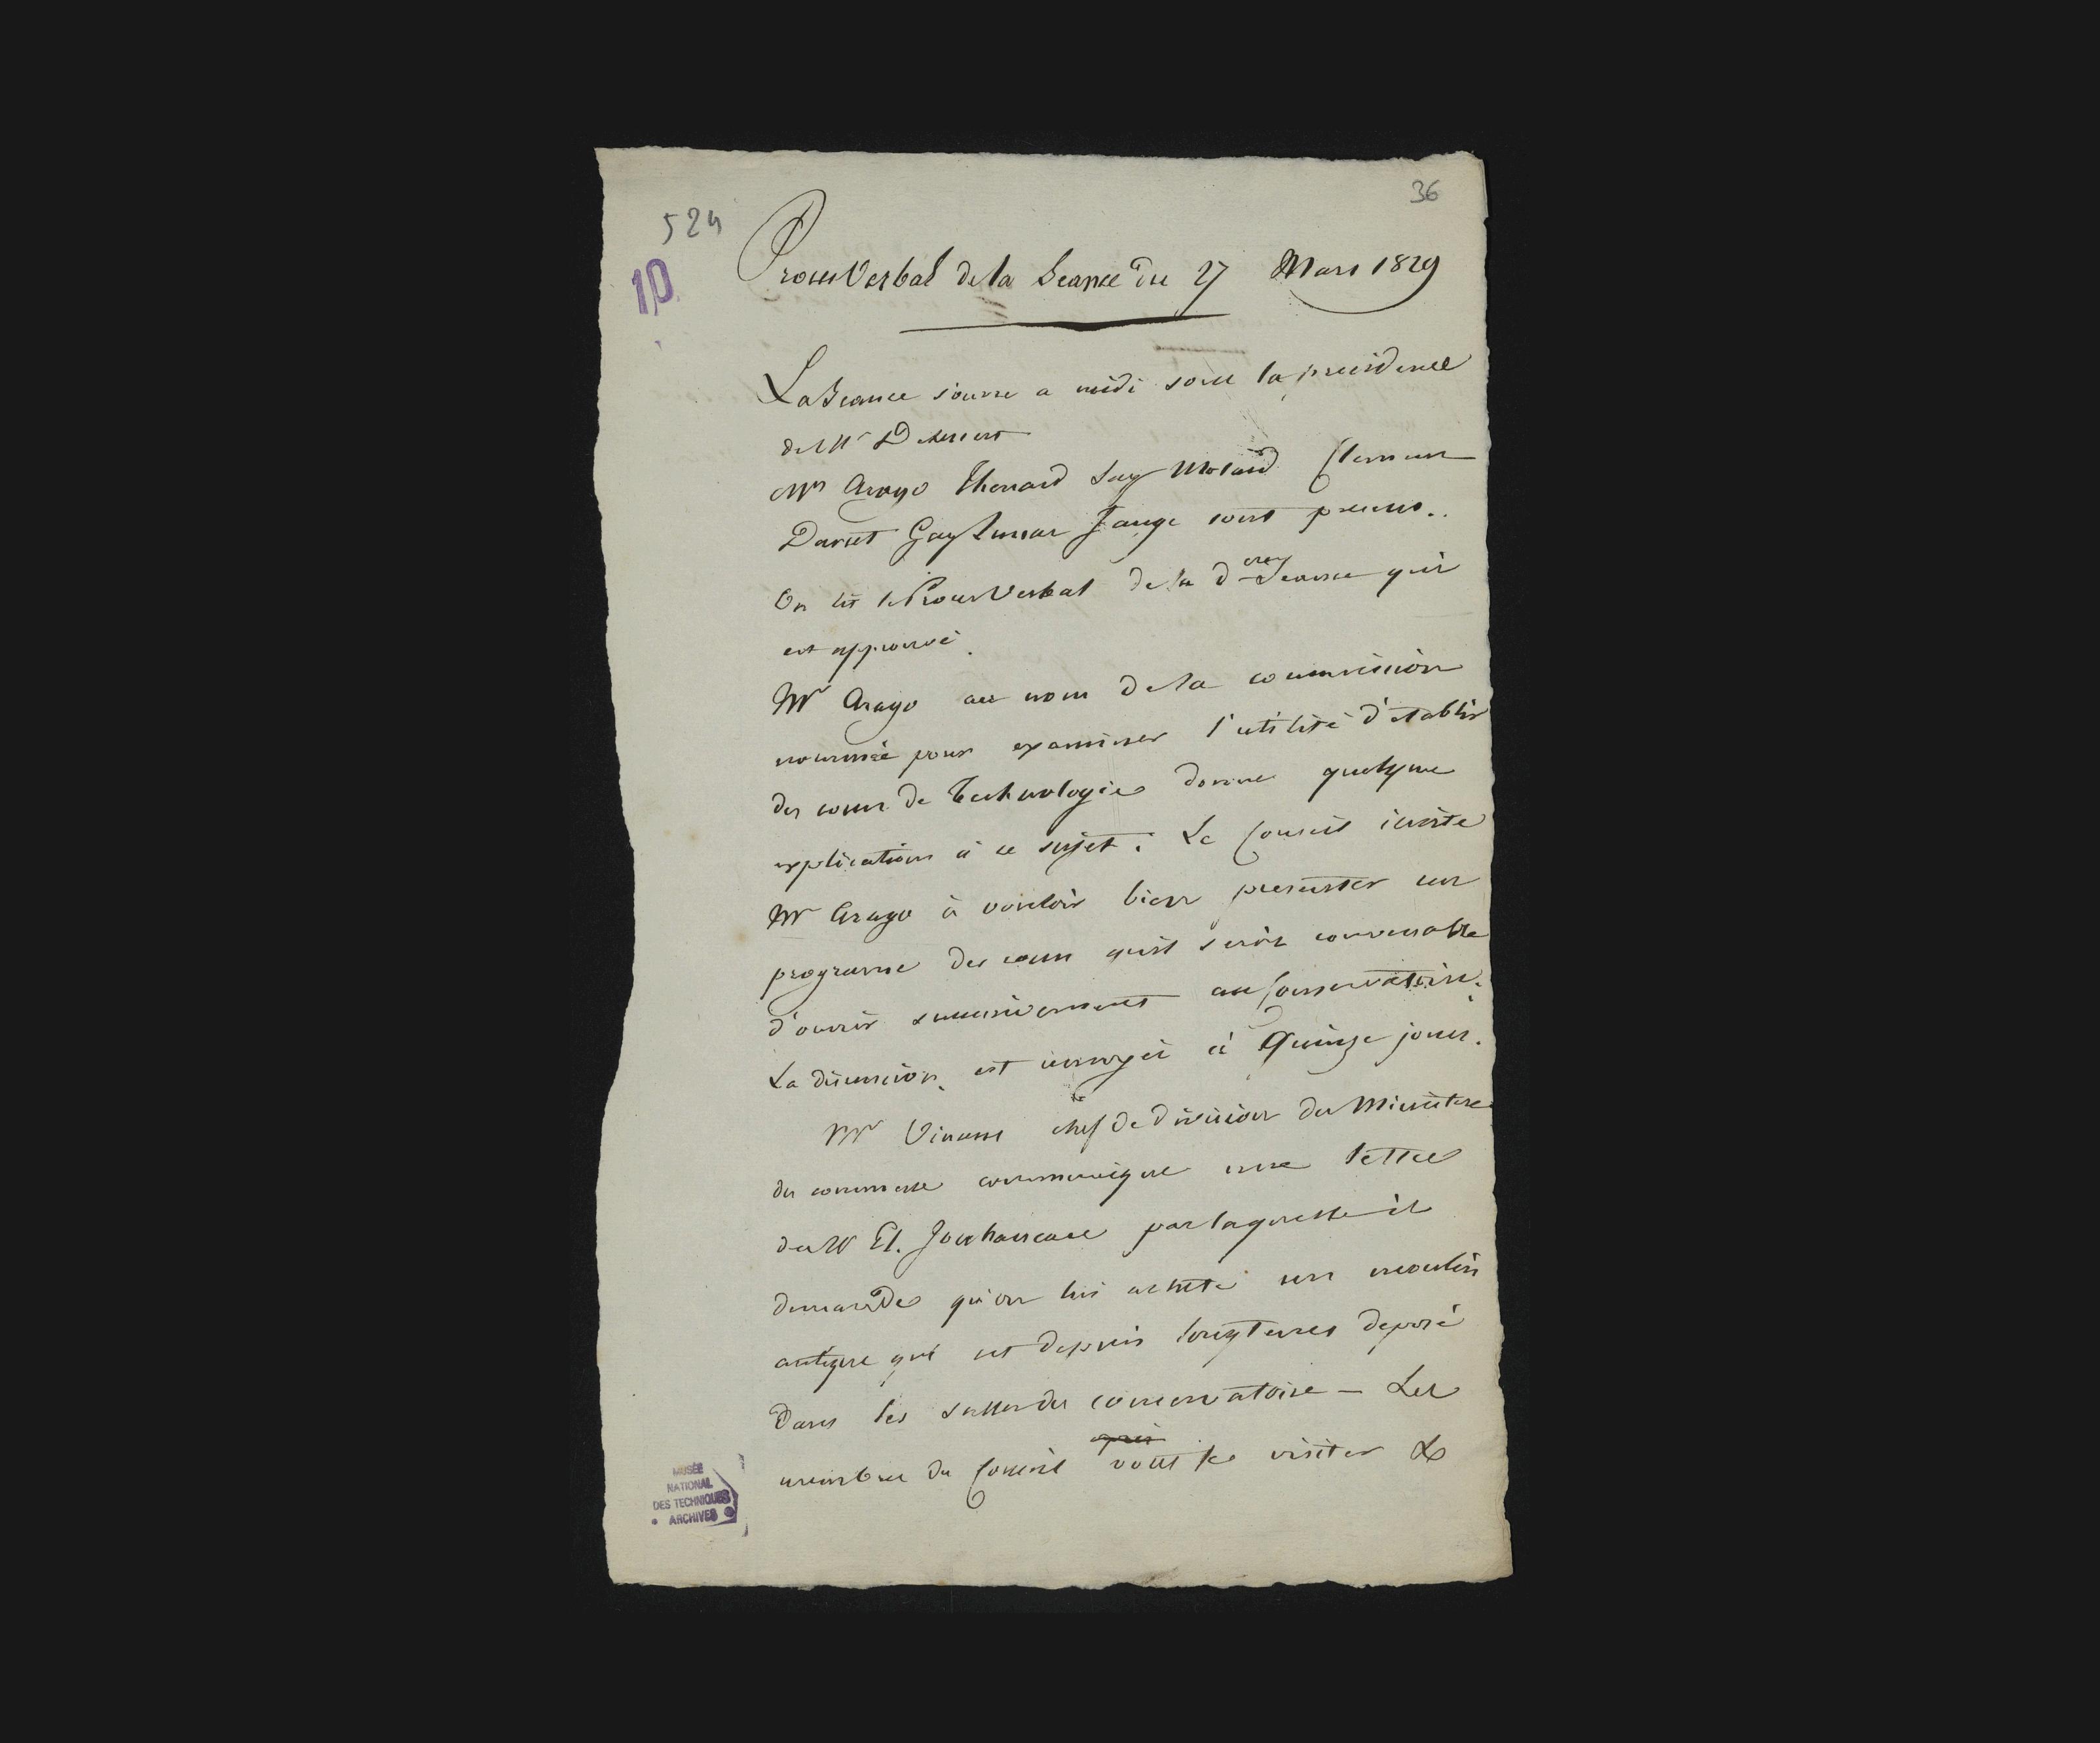 36
524
10
Proces Verbal de la Seance du 27 Mars 1829
La Seance s'ouvre a midi sous la presidence
de Mr Delessert
Mrs Arago Thenard Say Molard Clement
Darcet Gay Lussac Jauge sont presens..
On lit le Proces Verbal de la dre Seance qui
est approuvé.
Mr Arago au nom de la commission
nommée pour examiner l'utilité d'etablir
des cours de Technologie donne quelque
explications à ce sujet. Le Conseil invite
Mr Arago à vouloir bien presenter un
programe des cours qu'il seroit convenable
d'ouvrir successivement au Conservatoire.
La discussion est à Quinze jours.
Mr chef de division du Ministere
du commerce communique une lettre
du Mr El. par laquelle il
demande qu'on lui achete un moulin
antique qui est depuis longtems deposé
dans les salles du conservatoire – Les
membres du Conseil vont le visiter &
MUSÉE
NATIONAL
DES TECHNIQUES
ARCHIVES